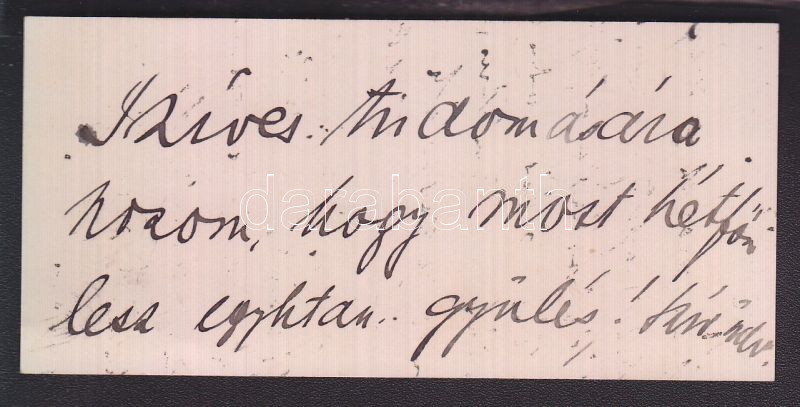 Szíves tudomására
hozom, hogy most hétfőn
lesz egyhtan. gyűlés!
darabanth